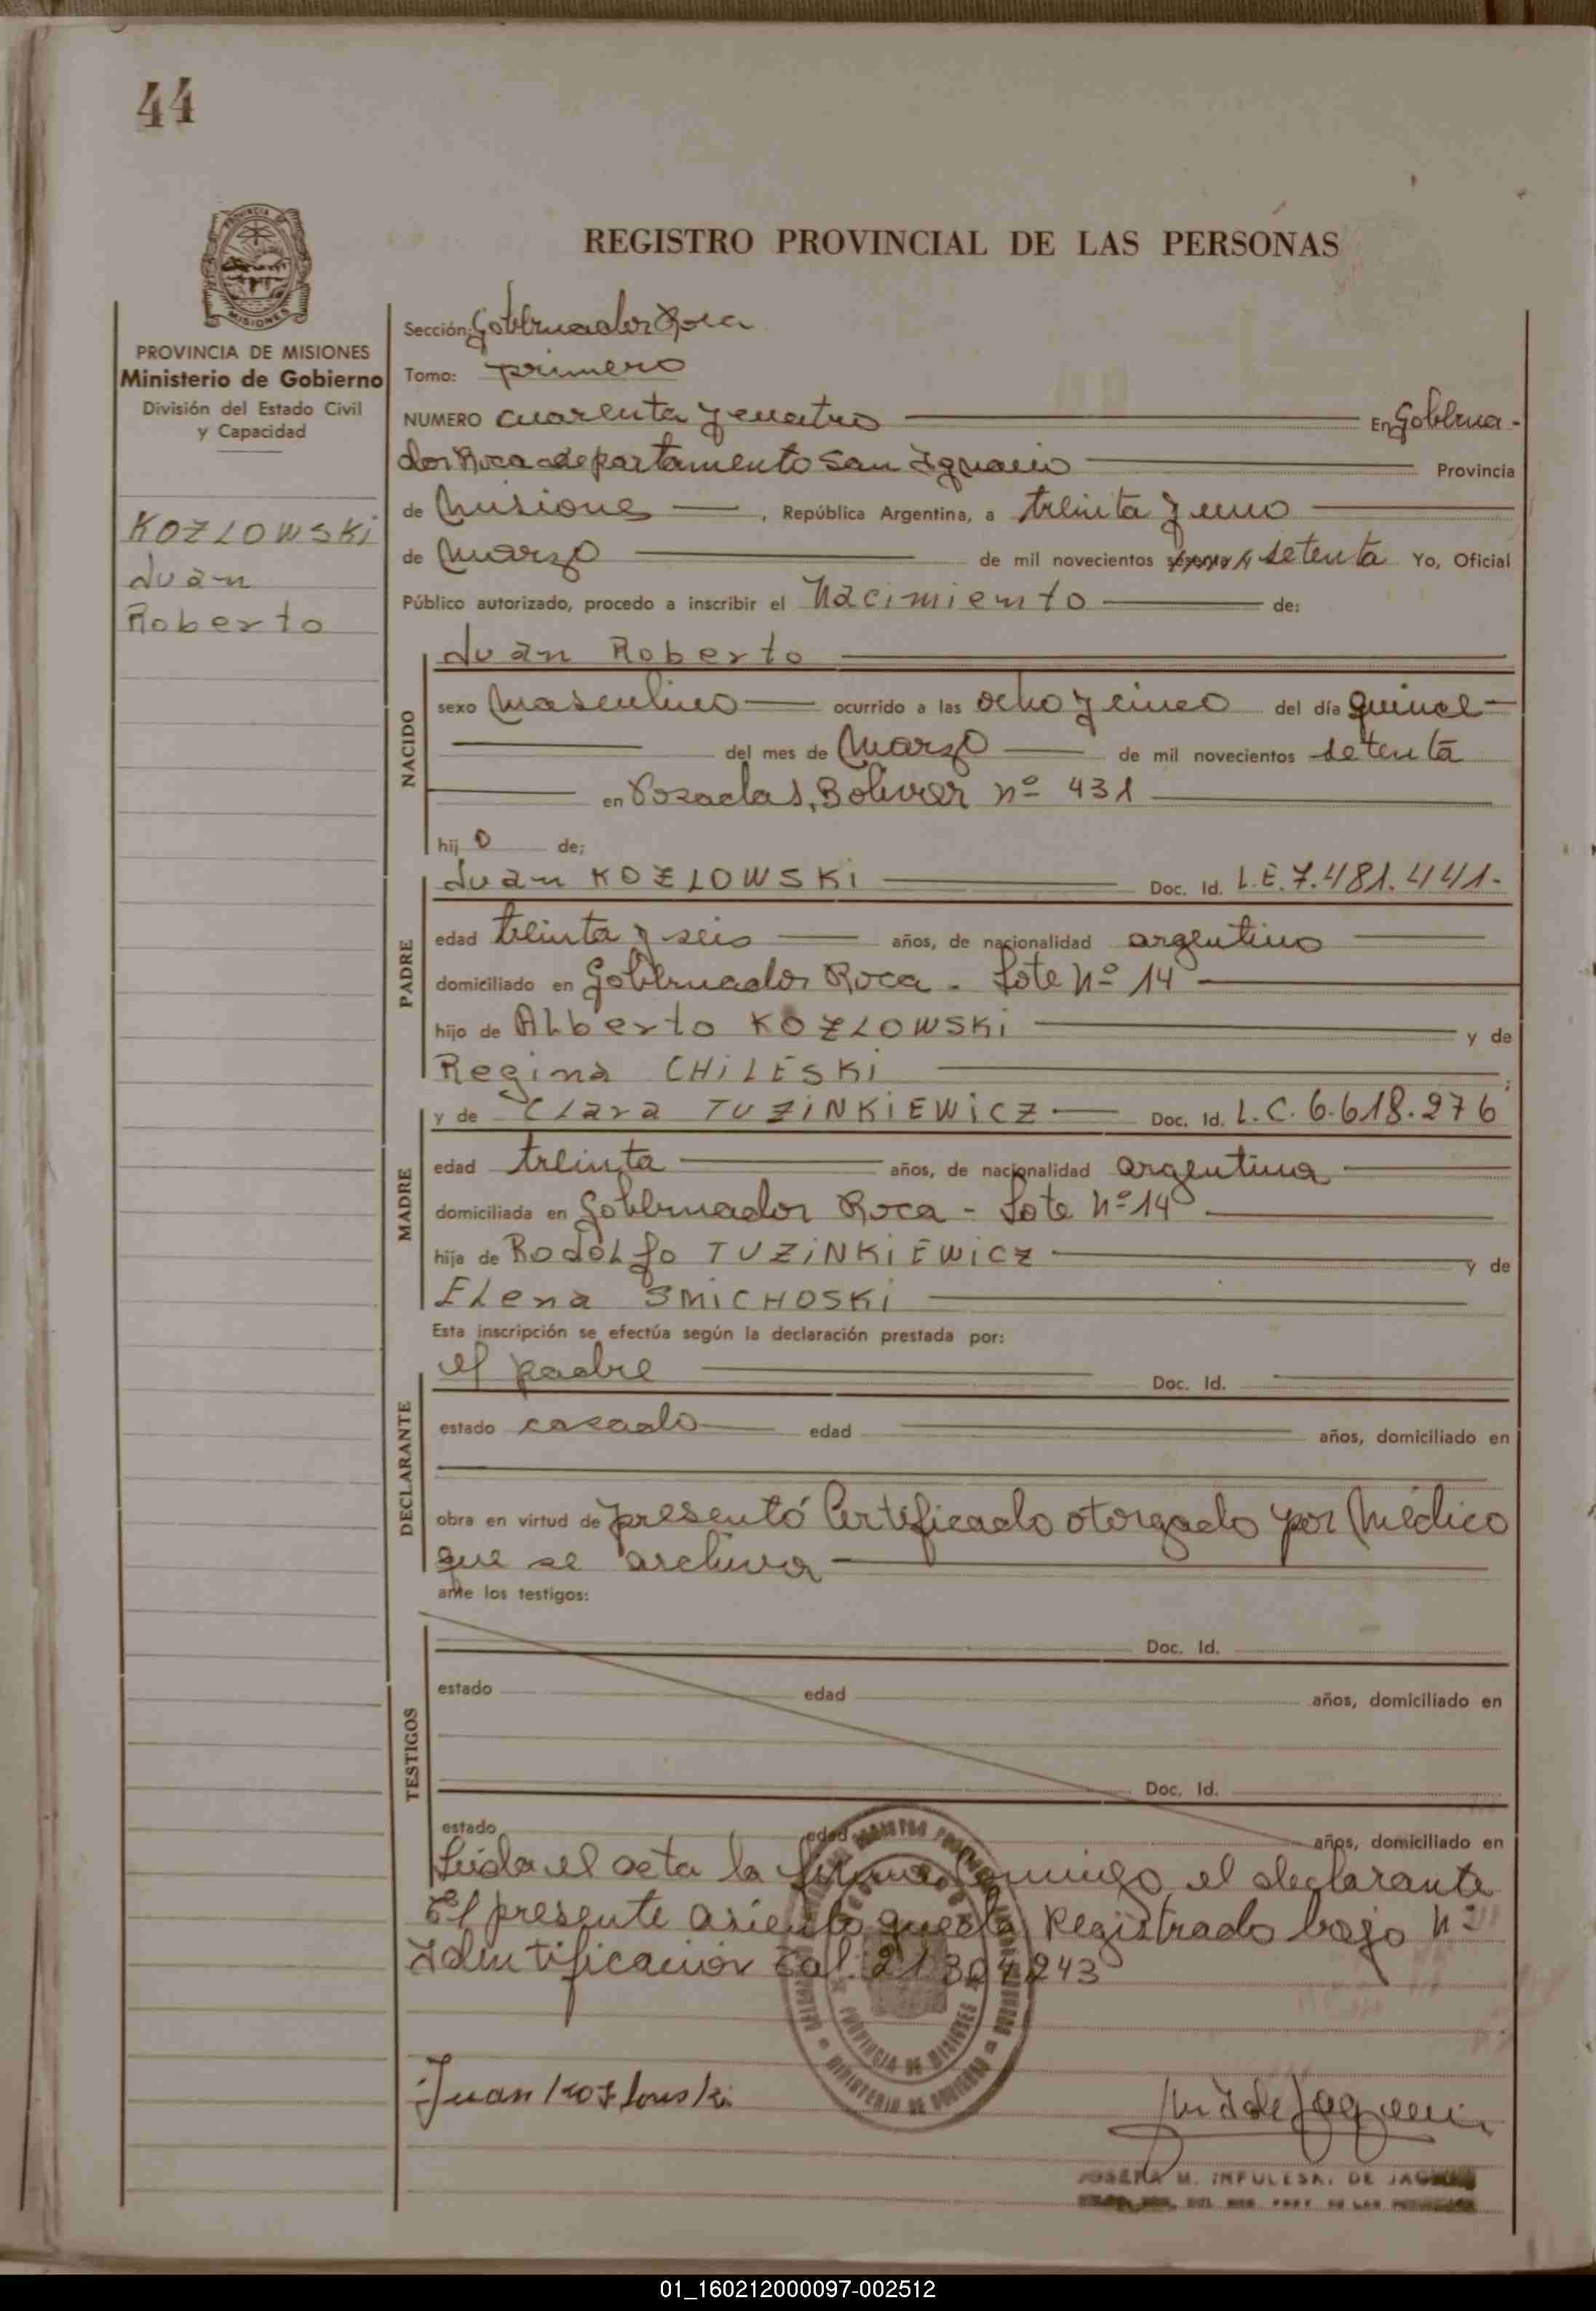 44
REGISTRO PROVINCIAL DE LAS PERSONAS
PROVINCIA DE MISIONES
Ministerio de Gobierno
División del Estado Civil
y Capacidad
KOZLOWSKi
Juan
Roberto
Sección: Gobernador Roca
Tomo: primero
NUMERO cuarenta y cuatro En Goberna-
dor Roca departamento San Ignacio Provincia
de Misiones, República Argentina, a treinta y uno
de Marzo de mil novecientos sesenta y setenta Yo, Oficial
Público autorizado, procedo a inscribir el Nacimiento de:
NACIDO
Juan Roberto
sexo Masculino ocurrido a las ocho y cinco del día quince
del mes de Marzo de mil novecientos setenta
en Posadas, Bolivar nº 431
hijo de;
PADRE
Juan KOZLOWSKi Doc. Id. L.E. 7.481.441.
edad treinta y seis años, de nacionalidad argentino
domiciliado en Gobernador Roca - Lote Nº 14
hijo de Alberto KOZLOWSKi y de
Regina CHiLESKi
MADRE
y de Clara TUZiNKiEWiCZ Doc. Id. L.C. 6.618.276
edad treinta años, de nacionalidad argentina
domiciliada en Gobernador Roca - Lote Nº 14
hija de Rodolfo TUZiNKiEWiCZ y de
Elena SMiCHOSKi
Esta inscripción se efectúa según la declaración prestada por:
DECLARANTE
el padre Doc. Id.
estado casado edad años, domiciliado en
obra en virtud de presentó Certificado otorgado por Médico
que se archiva
ante los testigos:
TESTIGOS
Doc. Id.
estado edad años, domiciliado en
Doc. Id.
estado edad años, domiciliado en
Leida el acta la firma conmigo el declarante
El presente asiento queda Registrado bajo Nº
Identificación 243
PROVINCIA DE MISIONES
MINISTERIO DE GOBIERNO
Juan Koslouski
JOSEFA M. DE
01_160212000097-002512